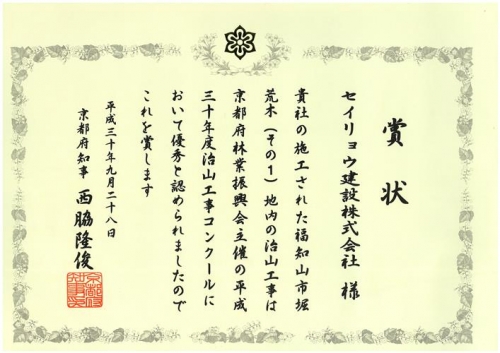 賞状
セイリョウ建設株式会社 様
貴社の施工された福知山市堀
荒木(その1)地内の治山工事は
京都府林業振興会主催の平成
三十年度治山工事コンクールに
おいて優秀と認められましたので
これを賞します
平成三十年九月二十八日
京都府知事 西脇隆俊